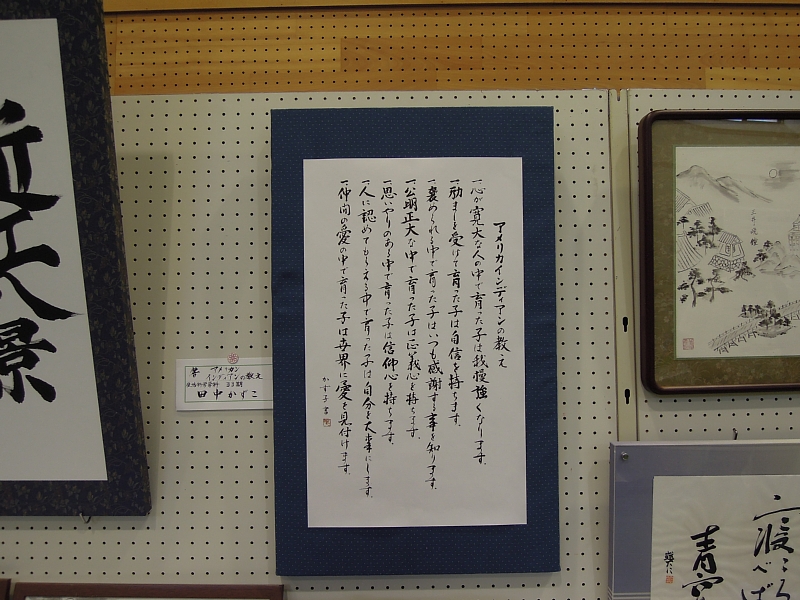 アメリカインディアンの教え
一心が寛大な人の中で育った子は我慢強くなります。
一励ましを受けて育った子は自信を持ちます。
一褒められる中で育った子はいつも感謝する事を知ります。
一公明正大な中で育った子は正義心を持ちます。
一思いやりのある中で育った子は信仰心を持ちます。
一人に認めてもらえる中で育った子は自分を大事にします。
一仲間の愛の中で育った子は世界に愛を見付けます。
かず子書
書 アメリカン
インディアンの教え
33期
田中かずこ
近江八景
三井晩鐘
渡ころべば
青